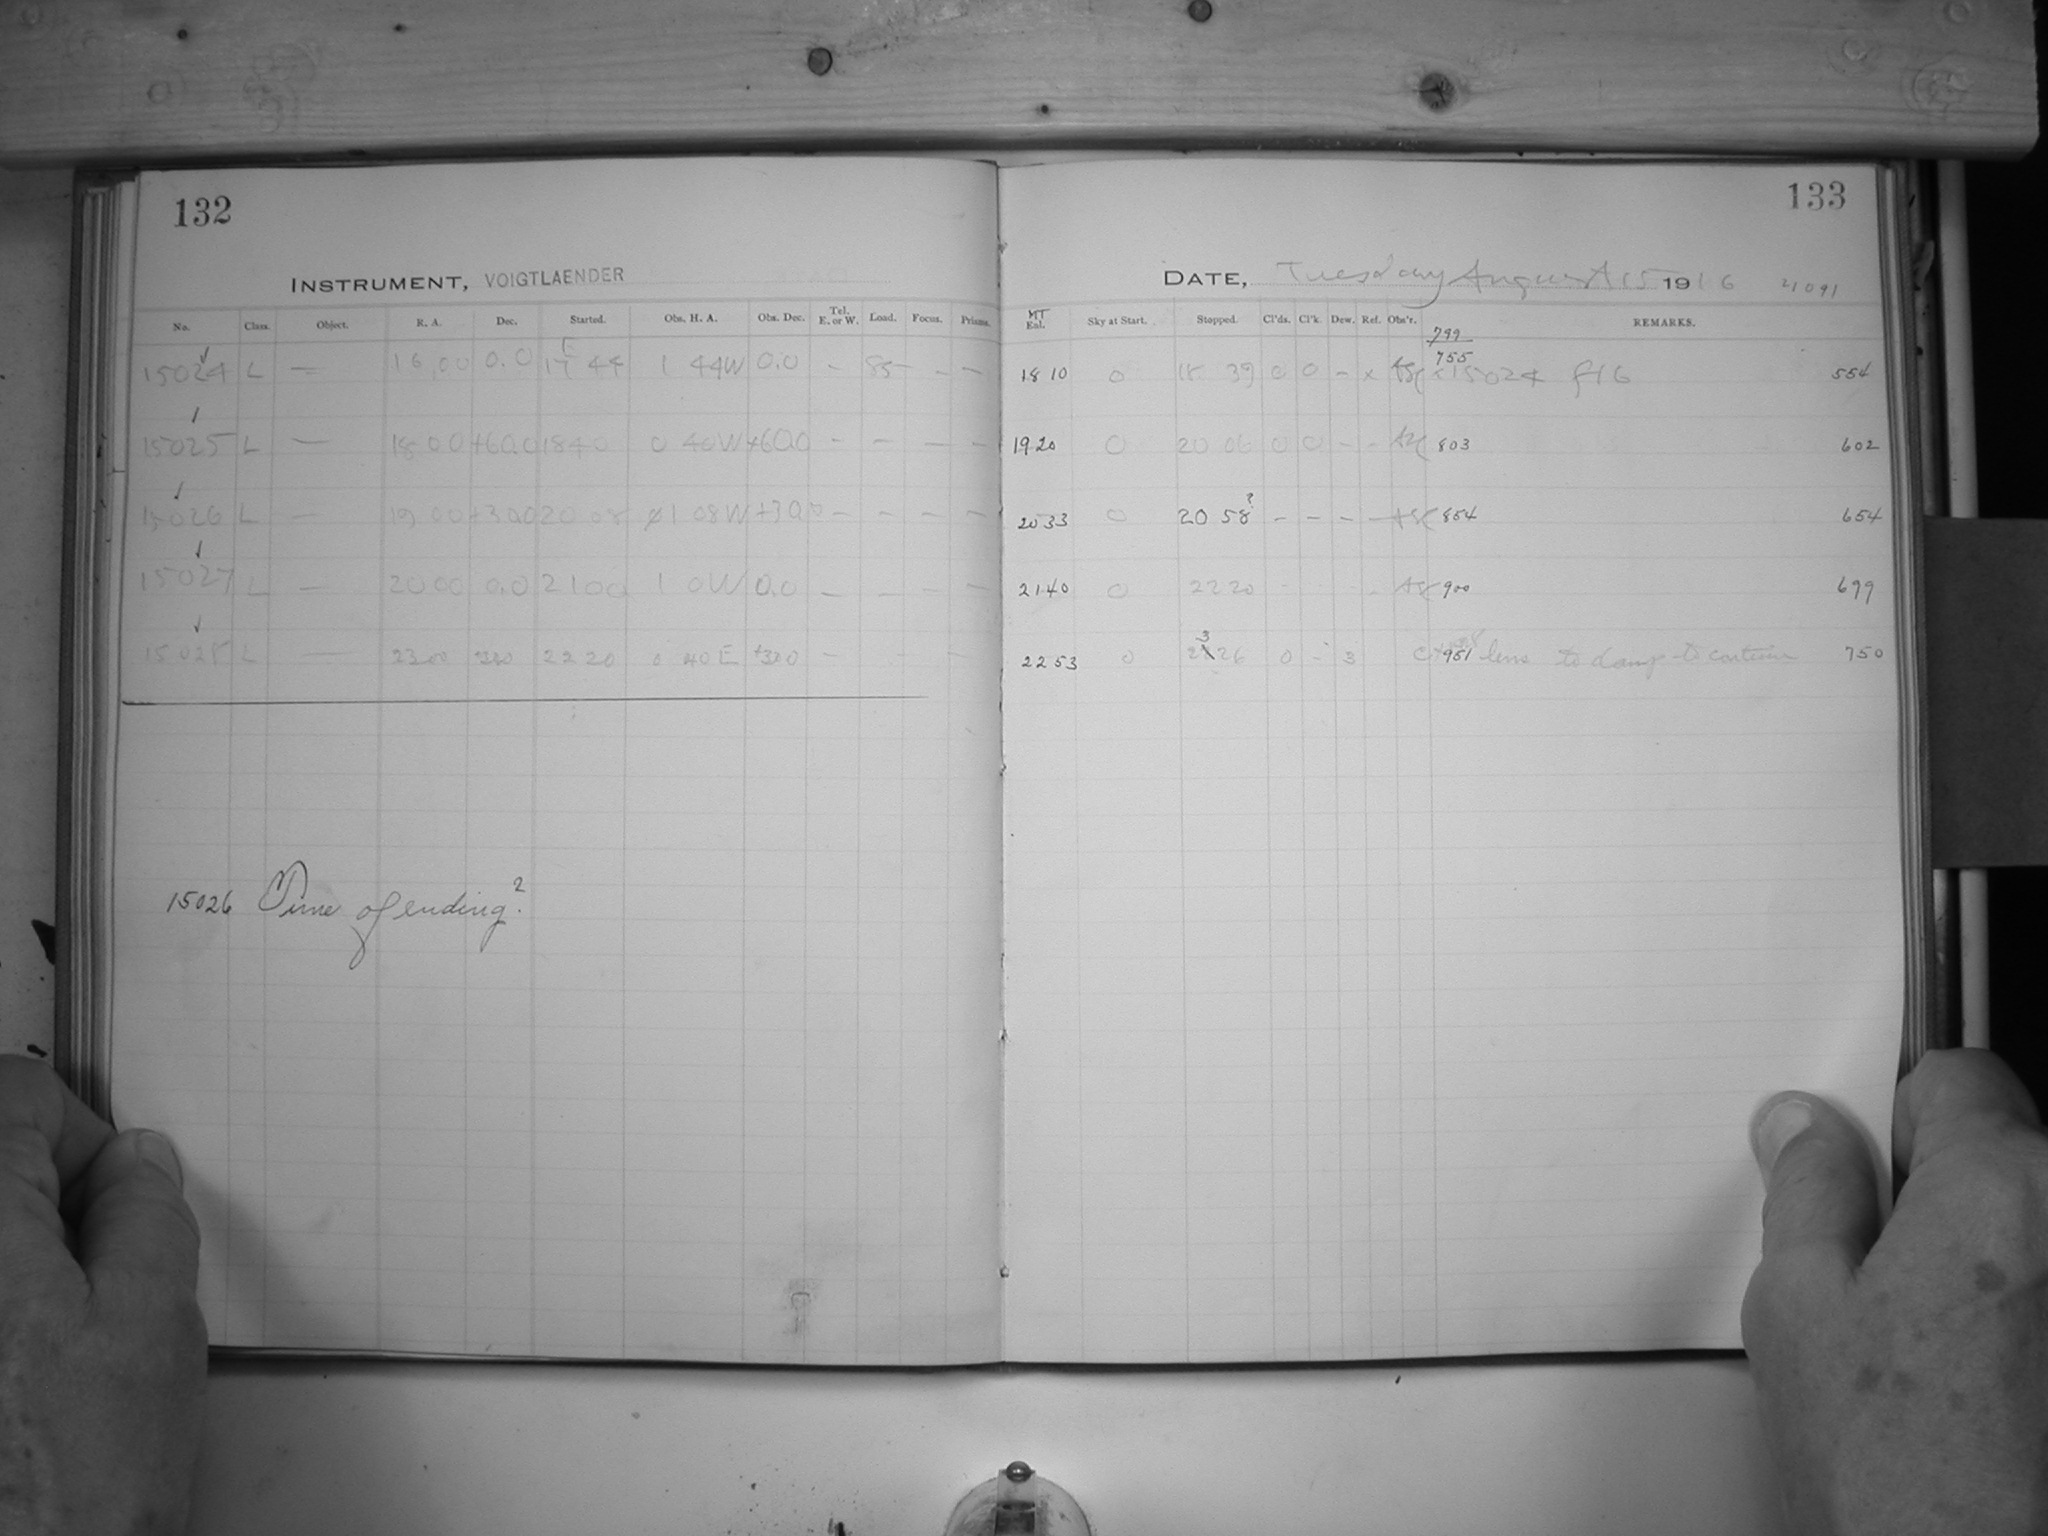 132
INSTRUMENT, VOIGTLAENDER
No. Class. Object. R. A. Dec. Started. Obs. H. A. Obs. Dec. Tel. E. or W. Load. Focus. Prisms.
15024 L — 16,00 0.0 17 44 1 44W 0.0 - 85 - -
15025 L — 18 00 +60.0 1840 0 40W +60.0 - - - -
15026 L — 19 00 +30.0 20 08 1 08W +30.0 - - - -
15027 L — 20 00 0.0 21 00 1 0W 0.0 - - - -
15028 L — 23 00 +30.0 22 20 0 40 E +30.0 - - - -
15026 Time of ending?
133
DATE, Tuesday August 15 1916 21091
MT
Eal. Sky at Start. Stopped. Cl'ds. Cl'k. Dew. Ref. Obs'r. REMARKS.
799
755
18 10 0 18 39 0 0 - x x15024 f16 554
19 20 0 20 06 0 0 - - 803 602
20 33 0 20 58? - - - - 854 654
21 40 0 22 20 900 699
3
22 53 0 26 0 - 3 951 lens to damp to continue 750